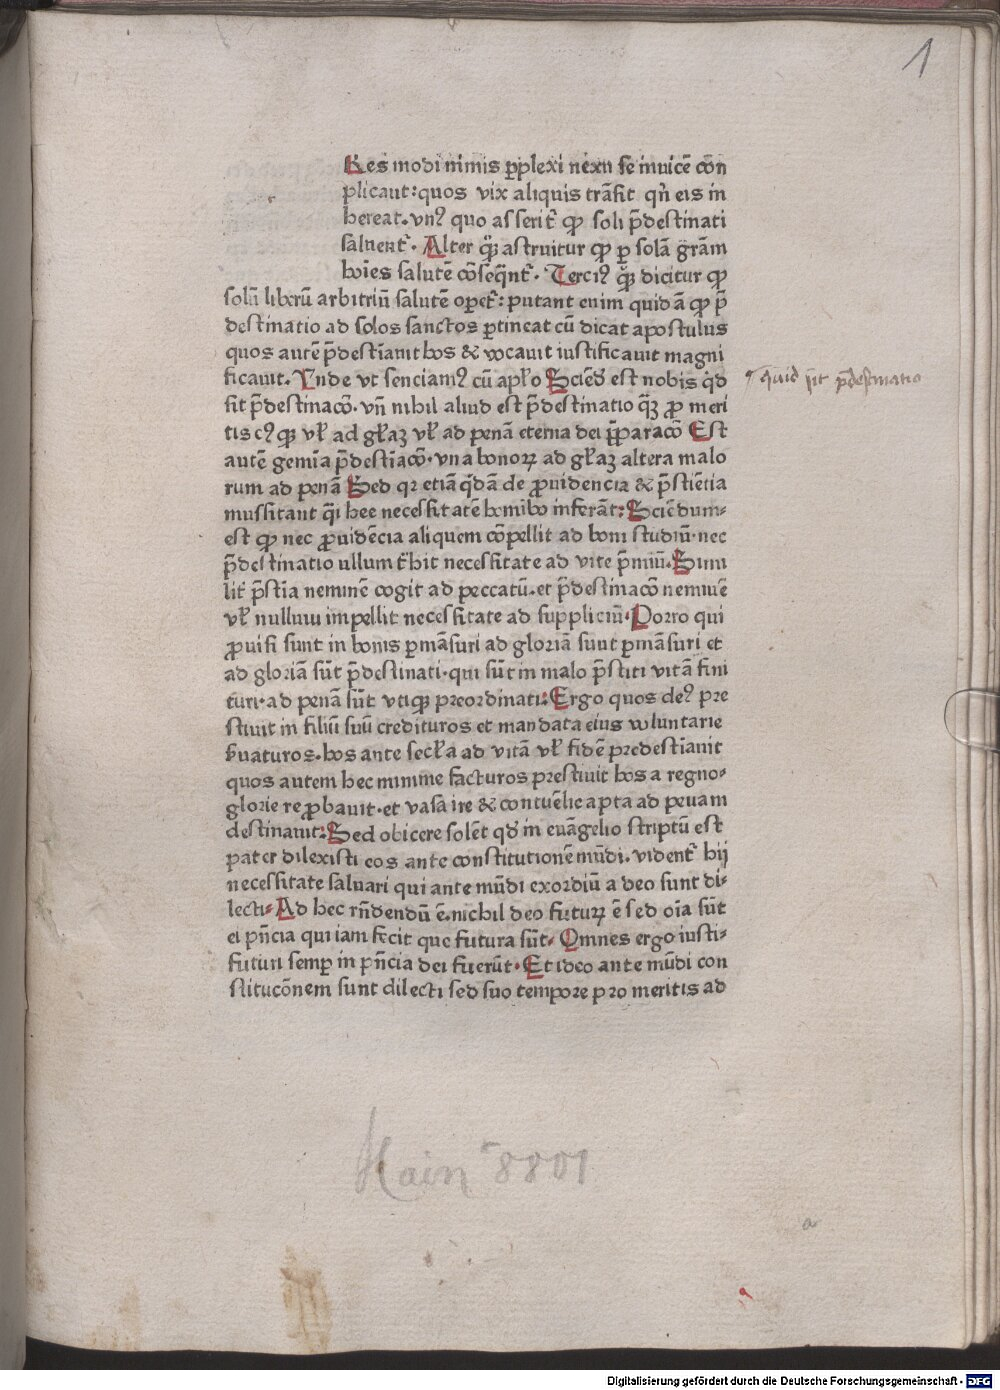 1
Res modi nimis ꝑplexi nexu se inuicē con
plicant: quos vix aliquis trāsit qn̄ eis in
hereat. vnꝰ quo asserit᷑ ꝙ soli p̄destinati
saluent᷑. Alter q̄ꝫ astruitur ꝙ ꝑ solā grām
hoīes salutē cōseq̄nt᷑. Terciꝰ q̄ꝫ dicitur ꝙ
solū liberū arbitriū salutē opet᷑: putant enim quidā ꝙ p̄
destinatio ad solos sanctos ꝑtineat cū dicat apostulus
quos autē p̄destīauit hos & vocauit iustificauit magni
ficauit. Vnde vt senciamꝰ cū apl̄o Sciēd est nobis qd̄
sit p̄destinacō. vn̄ nihil aliud est p̄destinatio q̄ꝫ ꝓ meri
tis cꝰqꝫ vl̄ ad gl̄aꝫ vl̄ ad penā eterna dei p̄ꝑaracō Est
autē gemīa p̄destīacō. vna bonoꝝ ad gl̄aꝫ altera malo
rum ad penā Sed qꝛ etiā q̄dā de ꝓuidencia & p̄stiētia
mussitant q̄i hee necessitatē homībꝰ inferāt: Sciēdum
est ꝙ nec ꝓuidēcia aliquem cōpellit ad boni studiū. nec
p̄destinatio ullum t᷑hit necessitate ad vite p̄miū. Simi
lit᷑ p̄stīa neminē cogit ad peccatū. et p̄destinacō neminē
vl̄ nullum impellit necessitate ad suppliciū. Porro qui
ꝓuisi sunt in bonis ꝑmāsuri ad gloriā sunt ꝑmāsuri et
ad gloriā sūt p̄destinati. qui sūt in malo p̄stiti vitā fini
turi. ad penā sūt vtiqꝫ preordinati: Ergo quos deꝰ pre
stiuit in filiū suū credituros et mandata eius voluntarie
ẜuaturos. hos ante secl̄a ad vitā vl̄ fidē predestīauit
quos autem hec minime facturos prestiuit hos a regno
glorie reꝓbauit. et vasa ire & contuēlie apta ad penam
destinauit: Sed obicere solēt qd̄ in euāgelio scriptū est
pater dilexisti eos ante constitutionē mūdi. vident᷑ hij
necessitate saluari qui ante mūdi exordiū a deo sunt di
lecti. Ad hec rn̄dendū ē. nichil deo futuꝝ ē sed oīa sūt
ei pn̄cia qui iam fecit que futura sūt. Omnes ergo iusti
futuri semꝑ in pn̄cia dei fuerūt. Et ideo ante mūdi con
stitucōnem sunt dilecti sed suo tempore pro meritis ad
quid sit p̄destinatio
Hain 8801
a
Digitalisierung gefördert durch die Deutsche Forschungsgemeinschaft - DFG